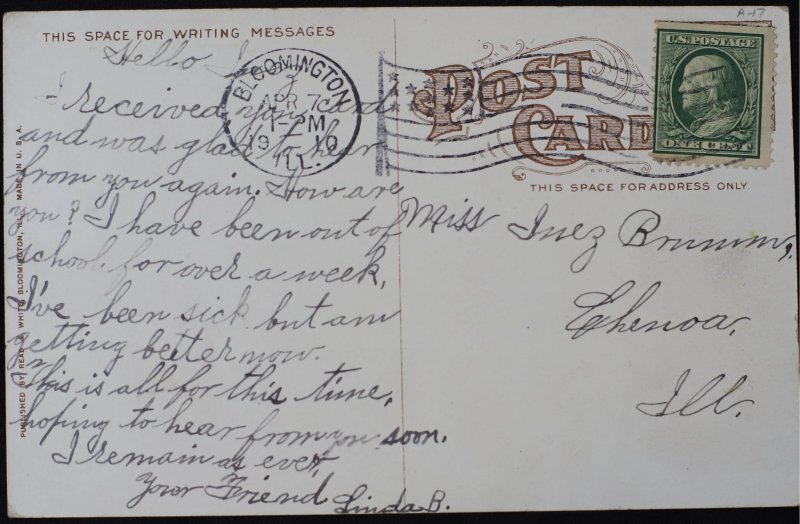 A-17
THIS SPACE FOR WRITING MESSAGES
Hello
I received your card
and was glad to hear
from you again. How are
you? I have been out of
school for over a week,
I've been sick but am
getting better now.
This is all for this time,
hoping to hear from you soon.
I remain as ever,
Your Friend Linda B.
BLOOMINGTON
APR 7
1-PM
1910
ILL.
POST
CARD
U.S. POSTAGE
ONE CENT
THIS SPACE FOR ADDRESS ONLY
Miss Inez Brumm,
Chenoa,
Ill.
PUBLISHED BY READ & WHITE, BLOOMINGTON, ILL. MADE IN U.S.A.